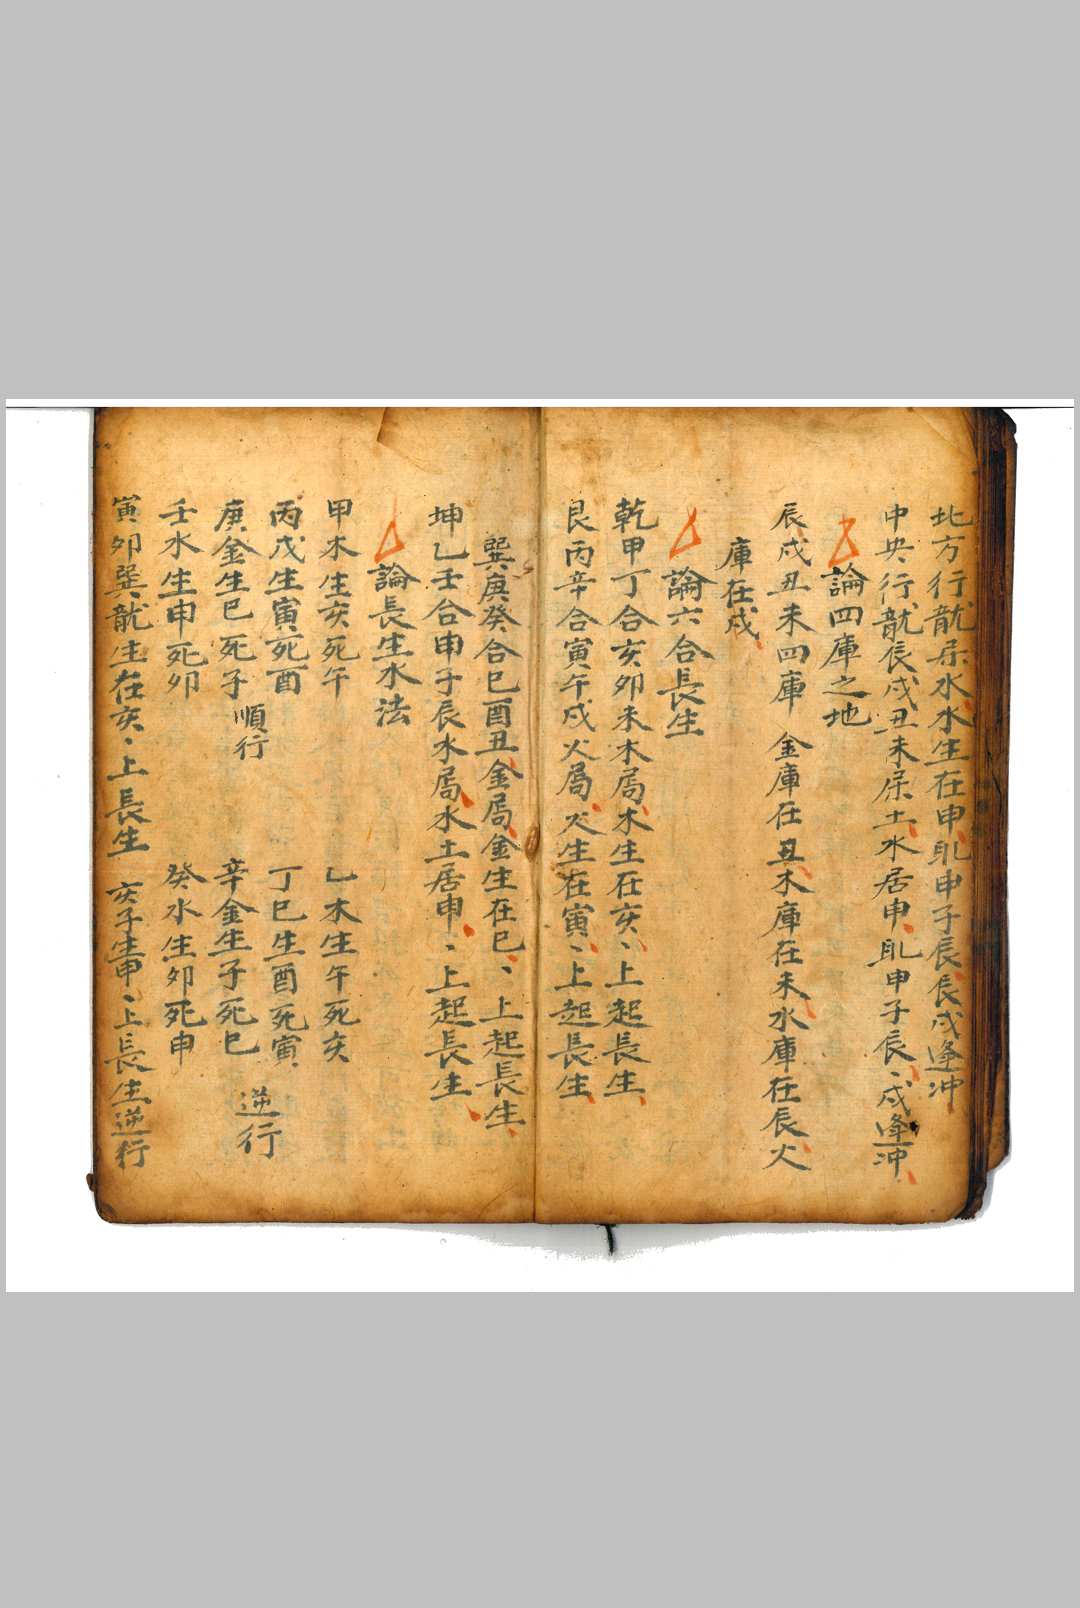 北方行龍屬水水生在申耴申子辰辰戌逢冲
中央行龍辰戌丑未屬土水居申耴申子辰、戌逢冲
論四庫之地
辰戌丑未四庫 金庫在丑木庫在未水庫在辰火
庫在戌
論六合長生
乾甲丁合亥卯未木局木生在亥、上起長生
艮丙辛合寅午戌火局火生在寅、上起長生
巽庚癸合巳酉丑金局金生在巳、上起長生
坤乙壬合申子辰水局水土居申、上起長生
論長生水法
甲木生亥死午 乙木生午死亥
丙戊生寅死酉 丁巳生酉死寅
庚金生巳死子 順行 辛金生子死巳 逆行
壬水生申死卯 癸水生卯死申
寅卯巽龍生在亥、上長生 亥子生申、上長生逆行